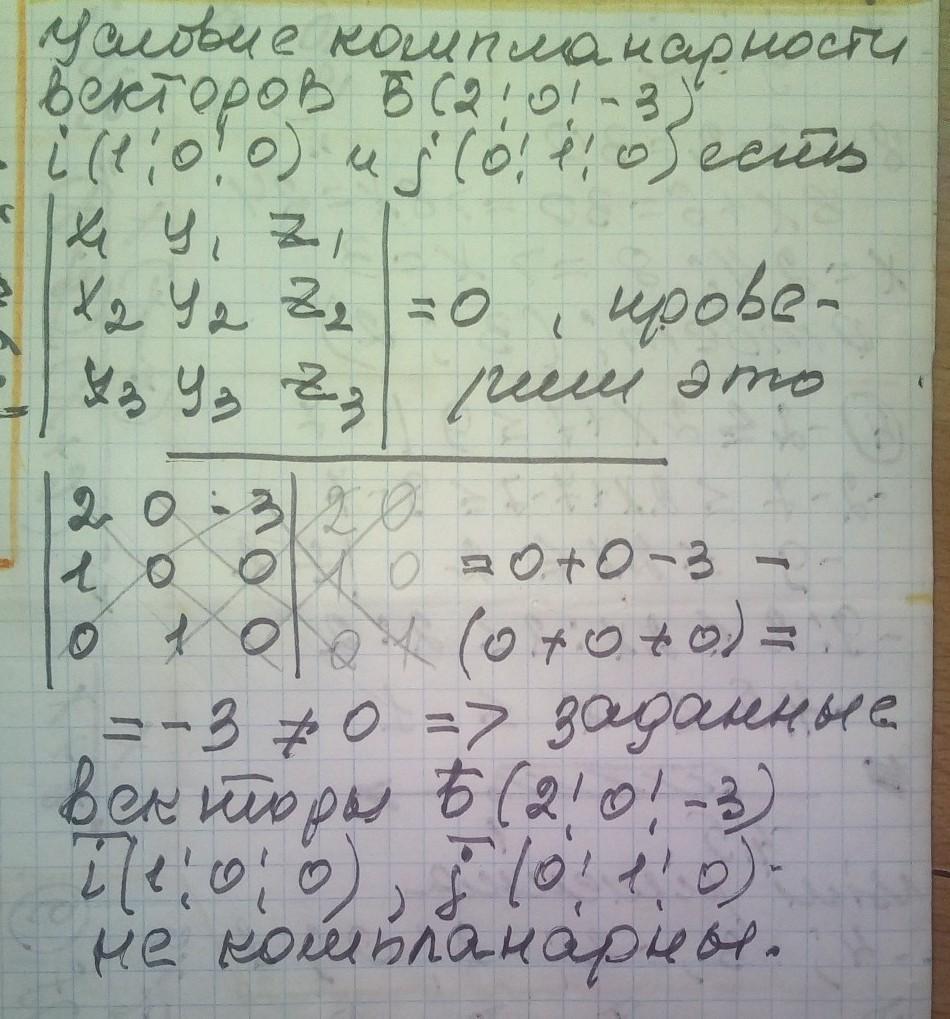 Условие компланарности
векторов b̅ (2; 0; -3)
i (1; 0; 0) и j (0; 1; 0) есть
| x₁ y₁ z₁ |
| x₂ y₂ z₂ | = 0 , прове-
| x₃ y₃ z₃ | рим это
| 2 0 -3 | 2 0
| 1 0 0 | 1 0 = 0 + 0 - 3 -
| 0 1 0 | 0 1 (0 + 0 + 0) =
= -3 ≠ 0 => заданные
векторы b̅ (2; 0; -3)
i̅ (1; 0; 0) , j̅ (0; 1; 0)
не компланарны.